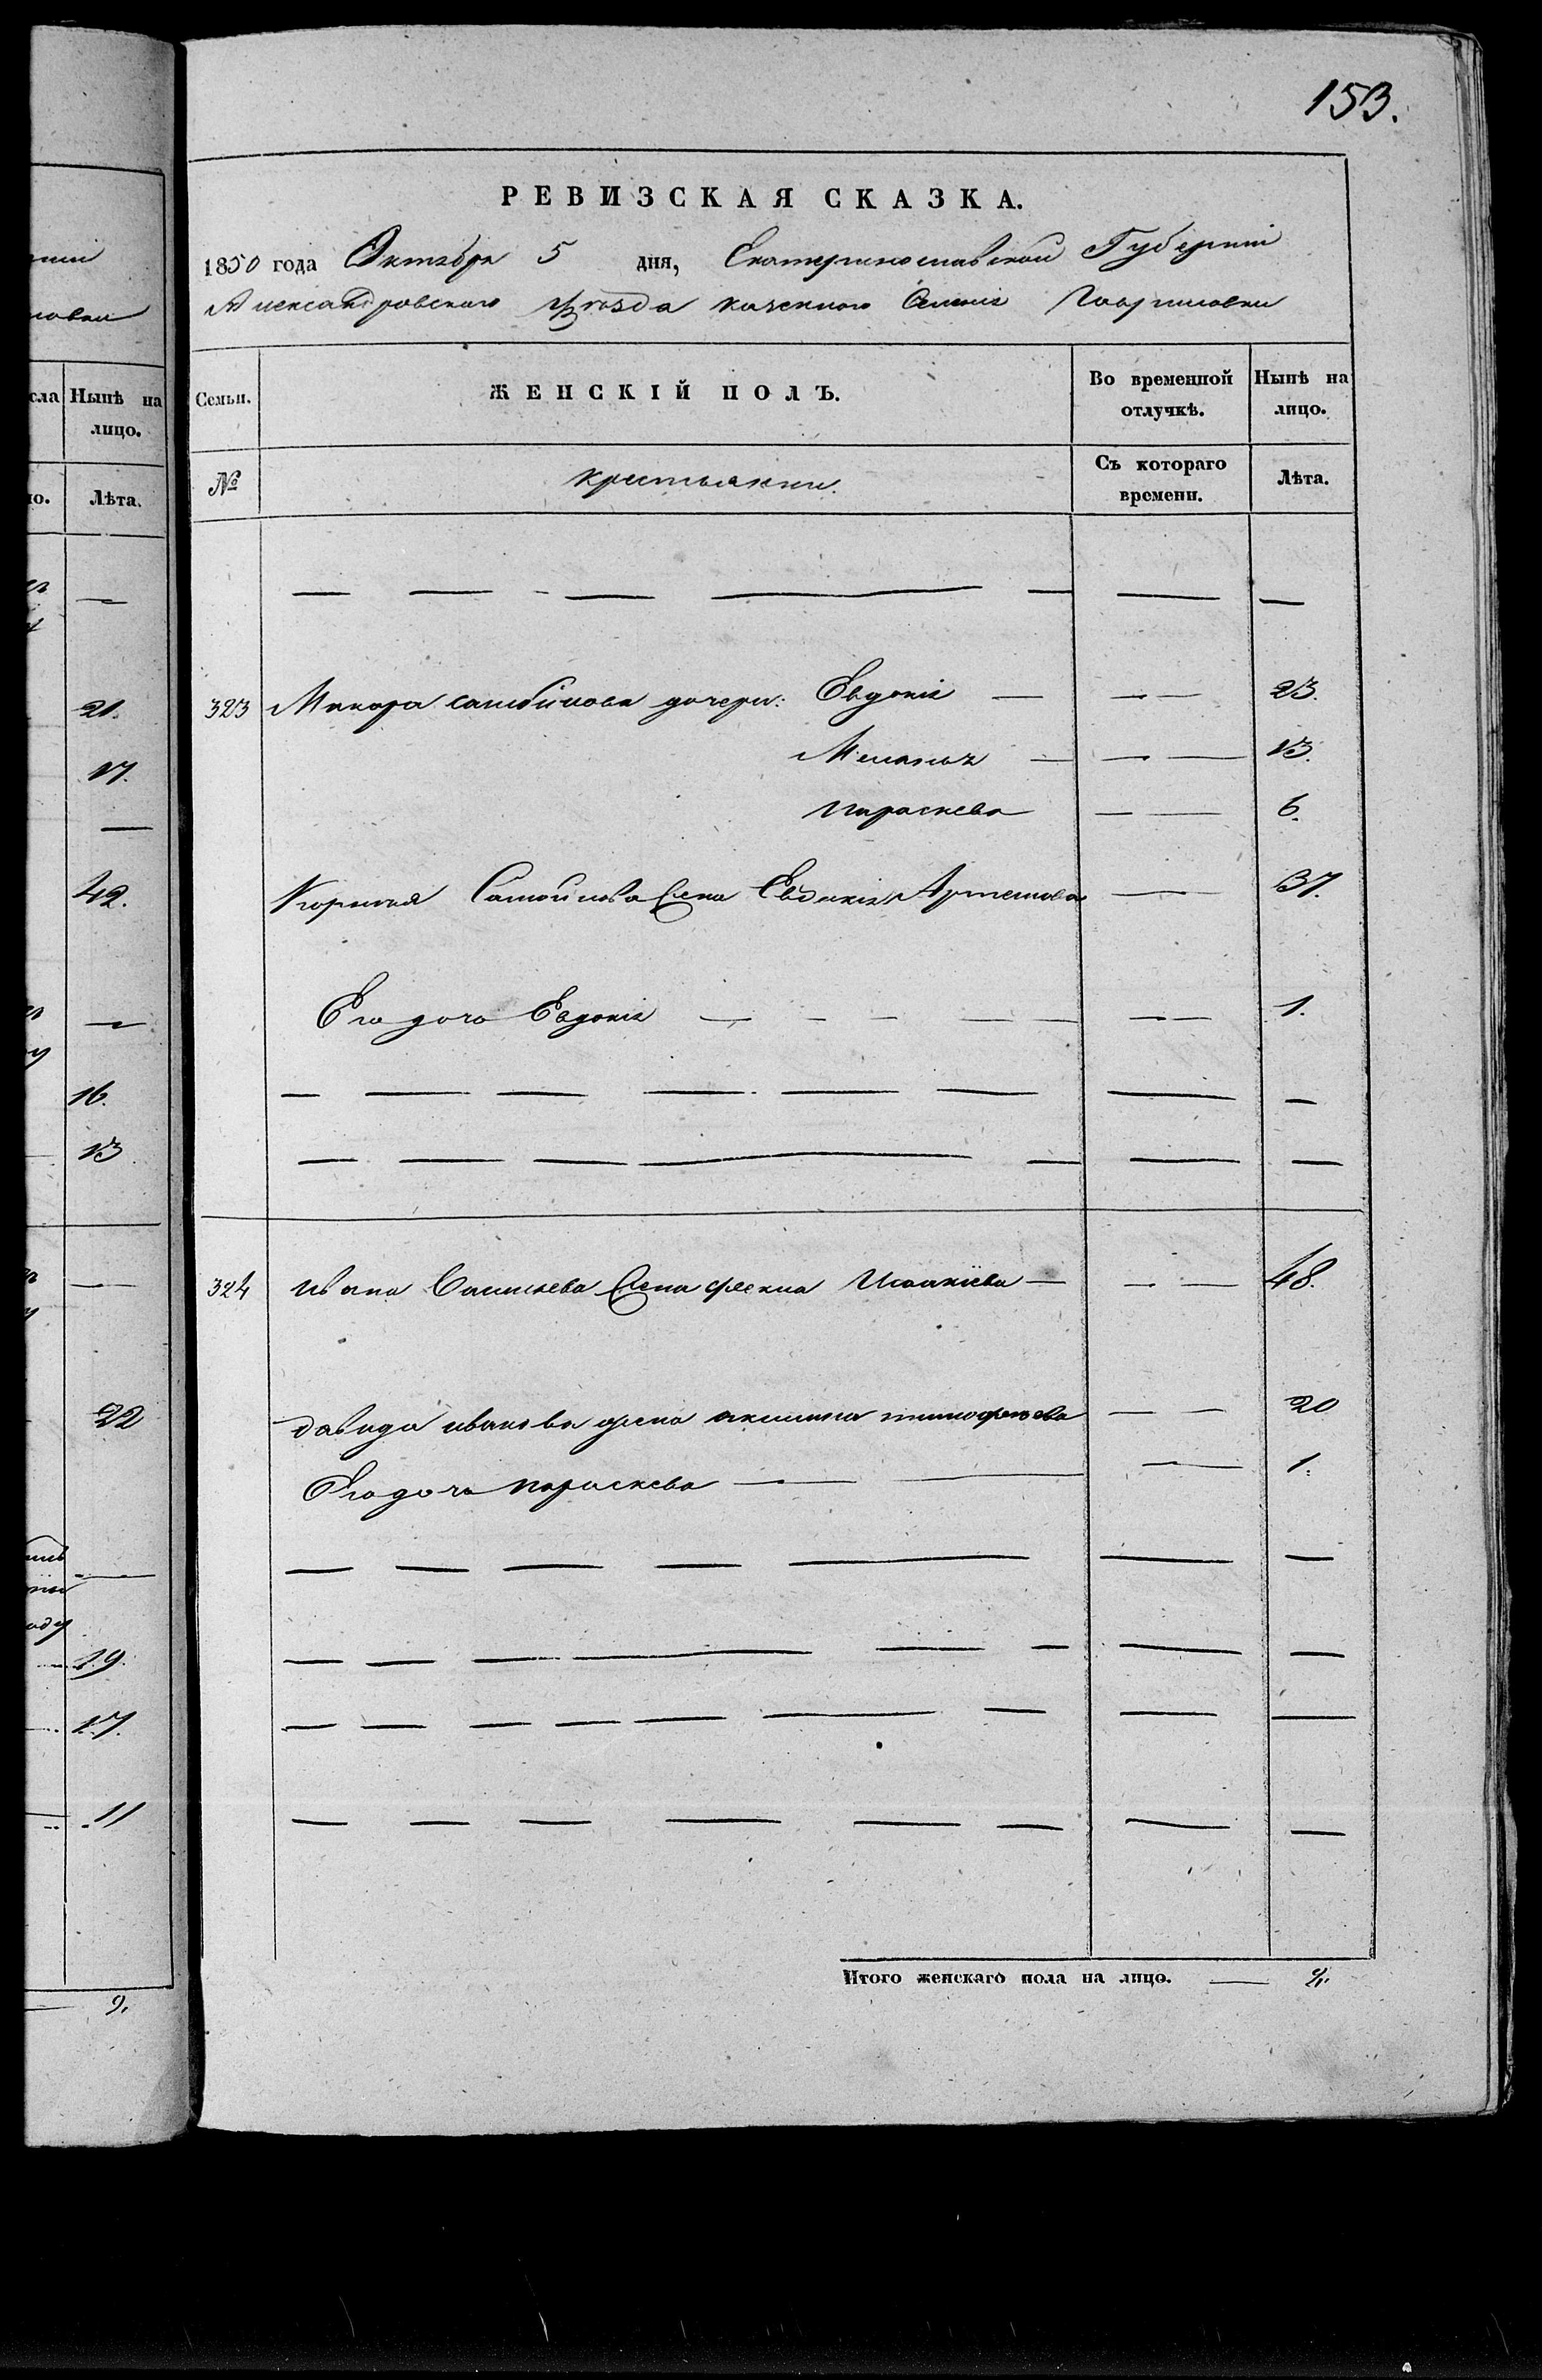 153.
РЕВИЗСКАЯ СКАЗКА.
1850 года Октября 5 дня, Екатеринославской Губерніи
Александровскаго уѣзда казенного Селенія Гавриловки
Семьи. ЖЕНСКІЙ ПОЛЪ. Во временной отлучкѣ. Нынѣ на лицо.
№ крестьянки. Съ котораго времени. Лѣта.
323 Макара самойлова дочери: Евдокія — — — 23.
Меланья — — — 13.
параскева — — 6.
Корнея Самойлова Жена Евдокія Артемова — 37.
Его дочь Евдокія — — — — — — — 1.
324 ивана Васильева Жена фекла Исакіева — — — 48.
давида иванова жена акилина тимофеева — — 20
Его дочь параскева — — — 1.
Итого женскаго пола на лицо. — 8.
Нынѣ на
лицо.
Лѣта.
21.
17.
42.
16.
13
22
19.
17.
11
9.